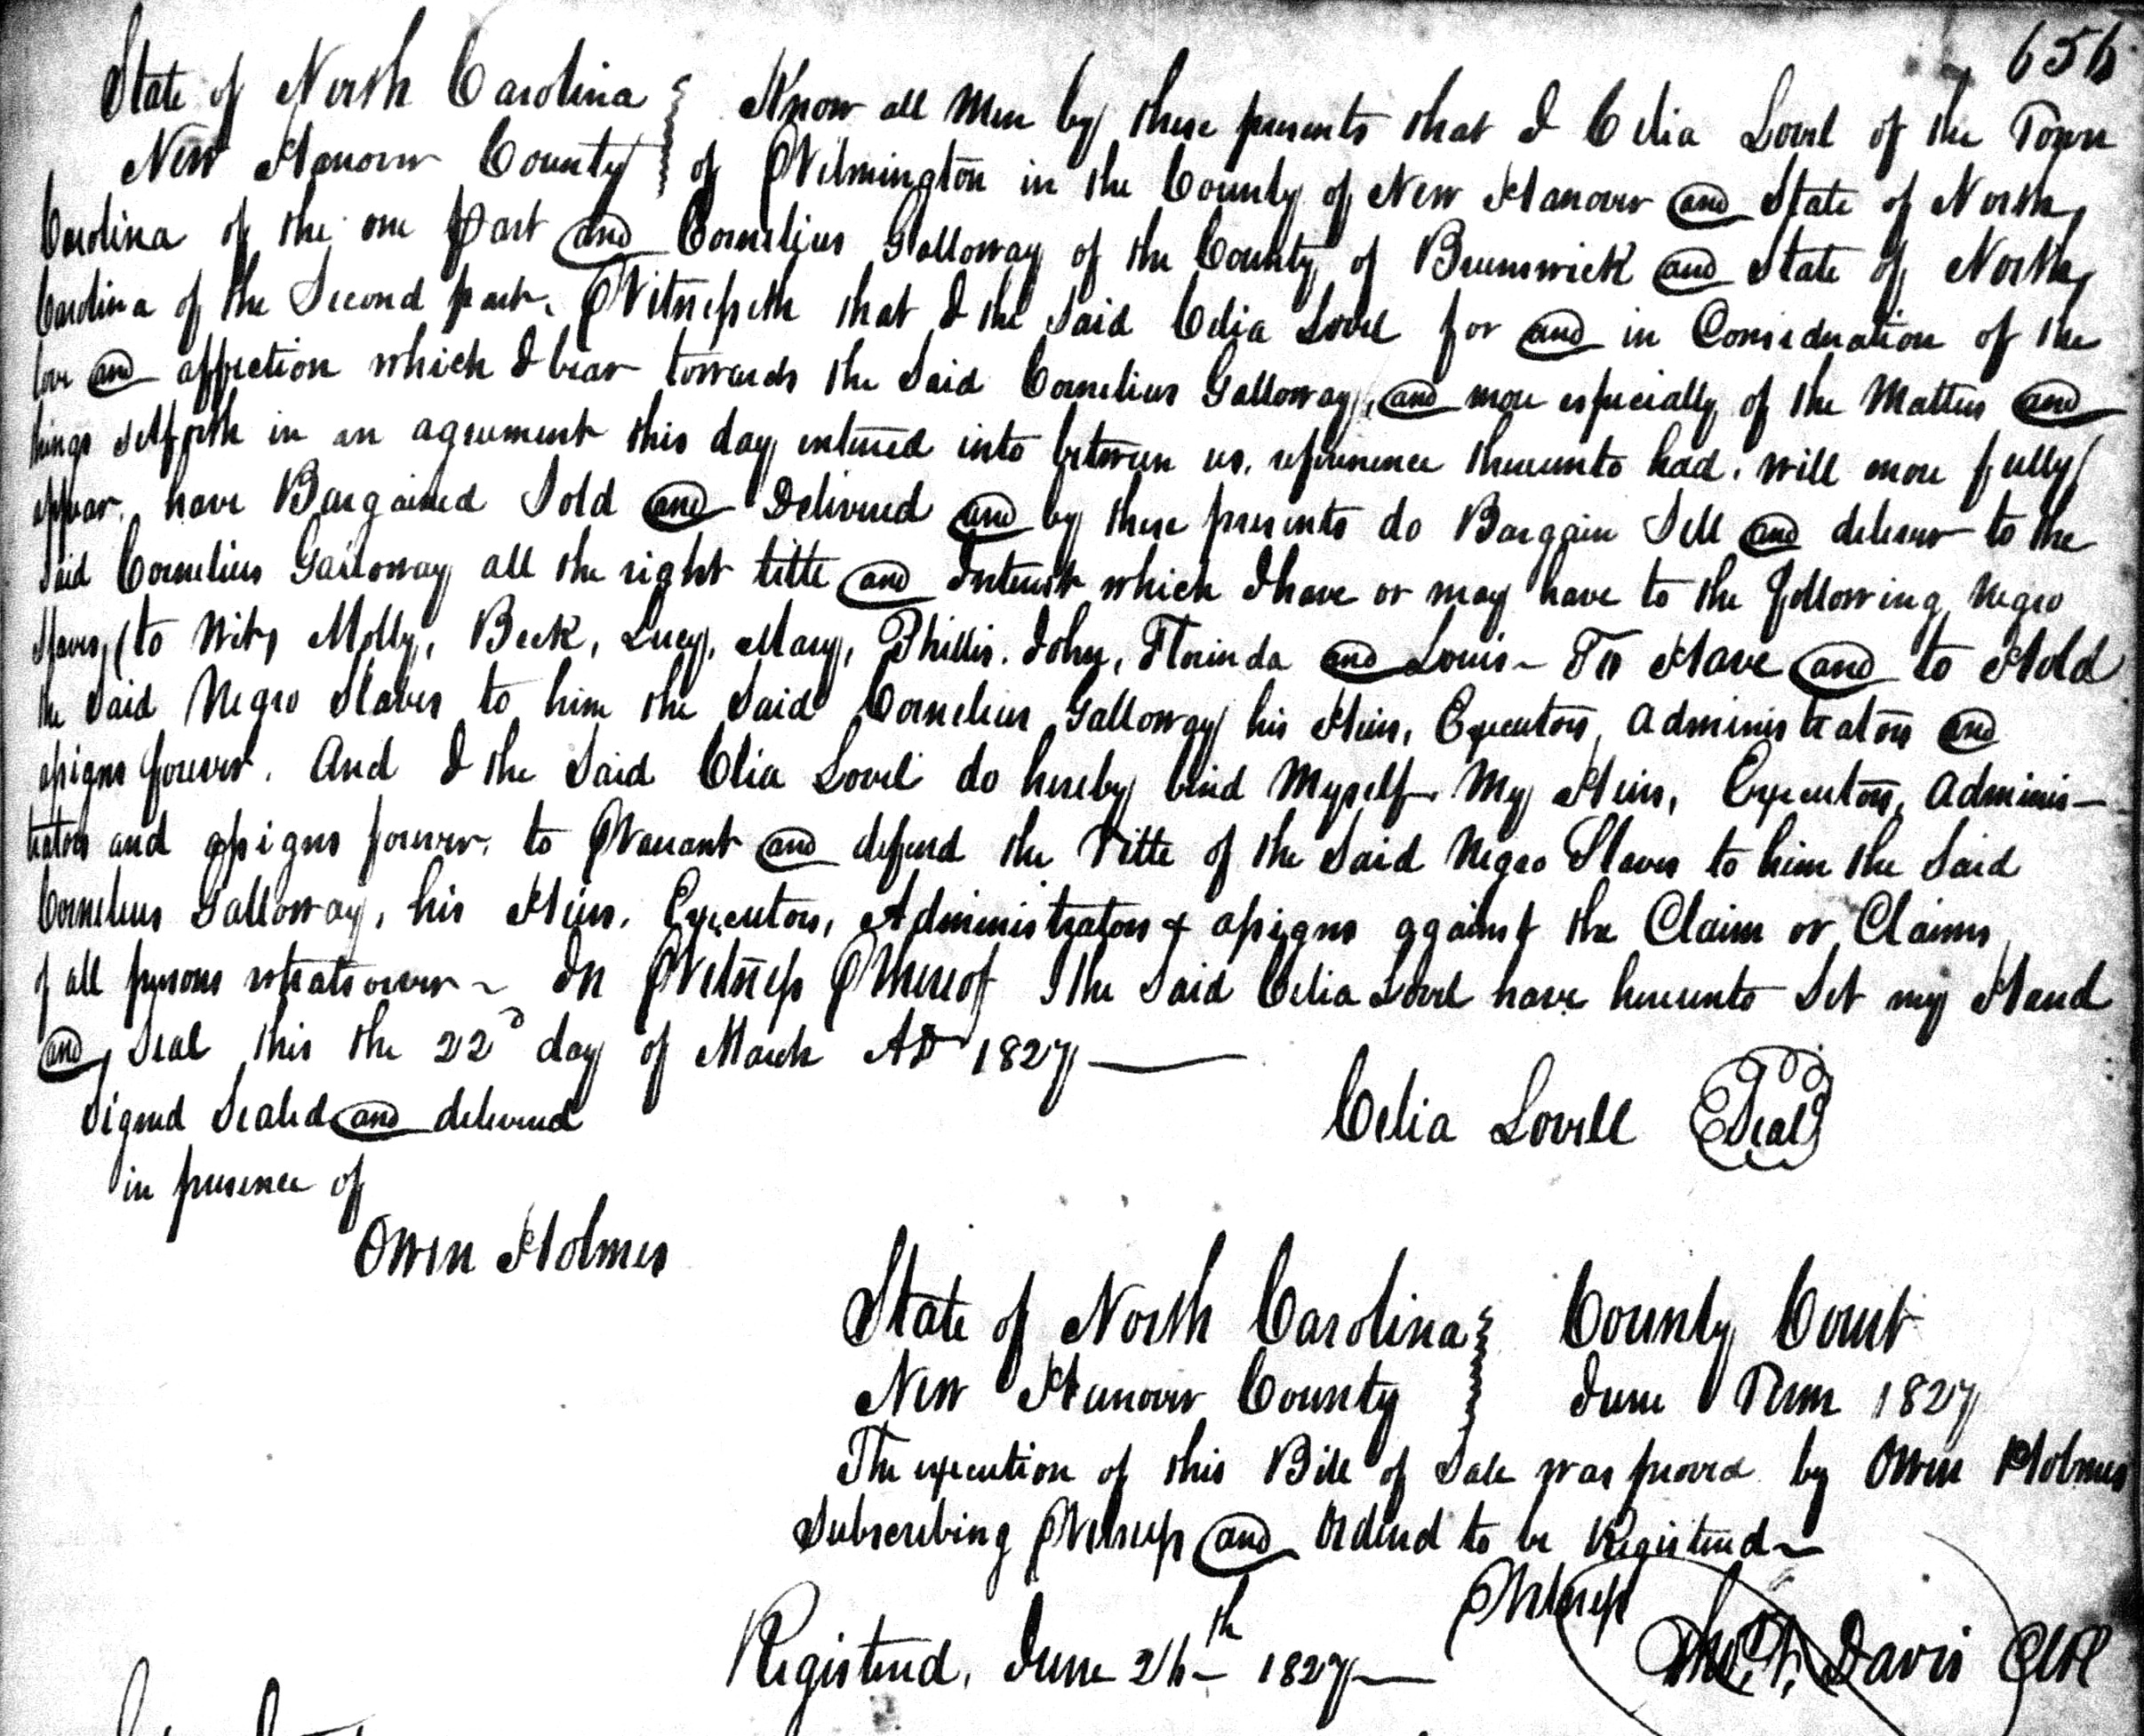 656
State of North Carolina Know all Men by these presents that I Celia Lovel of the Town
New Hanover County of Wilmington in the County of New Hanover and State of North
Carolina of the one Part and Cornelius Galloway of the County of Brunswick and State of North
Carolina of the Second part. Witnesseth that I the Said Celia Lovel for and in Consideration of the
love and affection which I bear towards the Said Cornelius Galloway, and more especially of the Matters and
things setforth in an agreement this day entered into between us. reference thereunto had. will more fully
appear. have Bargained Sold and Delivered and by these presents do Bargain Sell and deliver to the
Said Cornelius Galloway all the right title and Interest which I have or may have to the following Negro
Slaves, (to Wit, Molly, Beck, Lucy, Mary, Phillis. John, Florinda and Louis - To Have and to Hold
the Said Negro Slaves to him the Said Cornelius Galloway his Heirs, Executors, Administrators and
assigns forever. And I the Said Clia Lovel do hereby bind Myself My Heirs, Executors, Adminis-
trators and assigns forever. to Warrant and defend the Title of the Said Negro Slaves to him the Said
Cornelius Galloway, his Heirs. Executors, Administrators & assigns against the Claim or Claims
of all persons whatsoever - In Witness Whereof I the Said Celia Lovel have hereunto Set my Hand
and Seal this the 22d day of March AD 1827
Signed Sealed and delivered
Celia Lovell Seal
in presence of
Owen Holmes
State of North Carolina County Court
New Hanover County June Term 1827
The execution of this Bill of Sale was proved by Owen Holmes
Subscribing Witness and Ordered to be Registered
Witness
Registered, June 26th 1827 Davis Clk